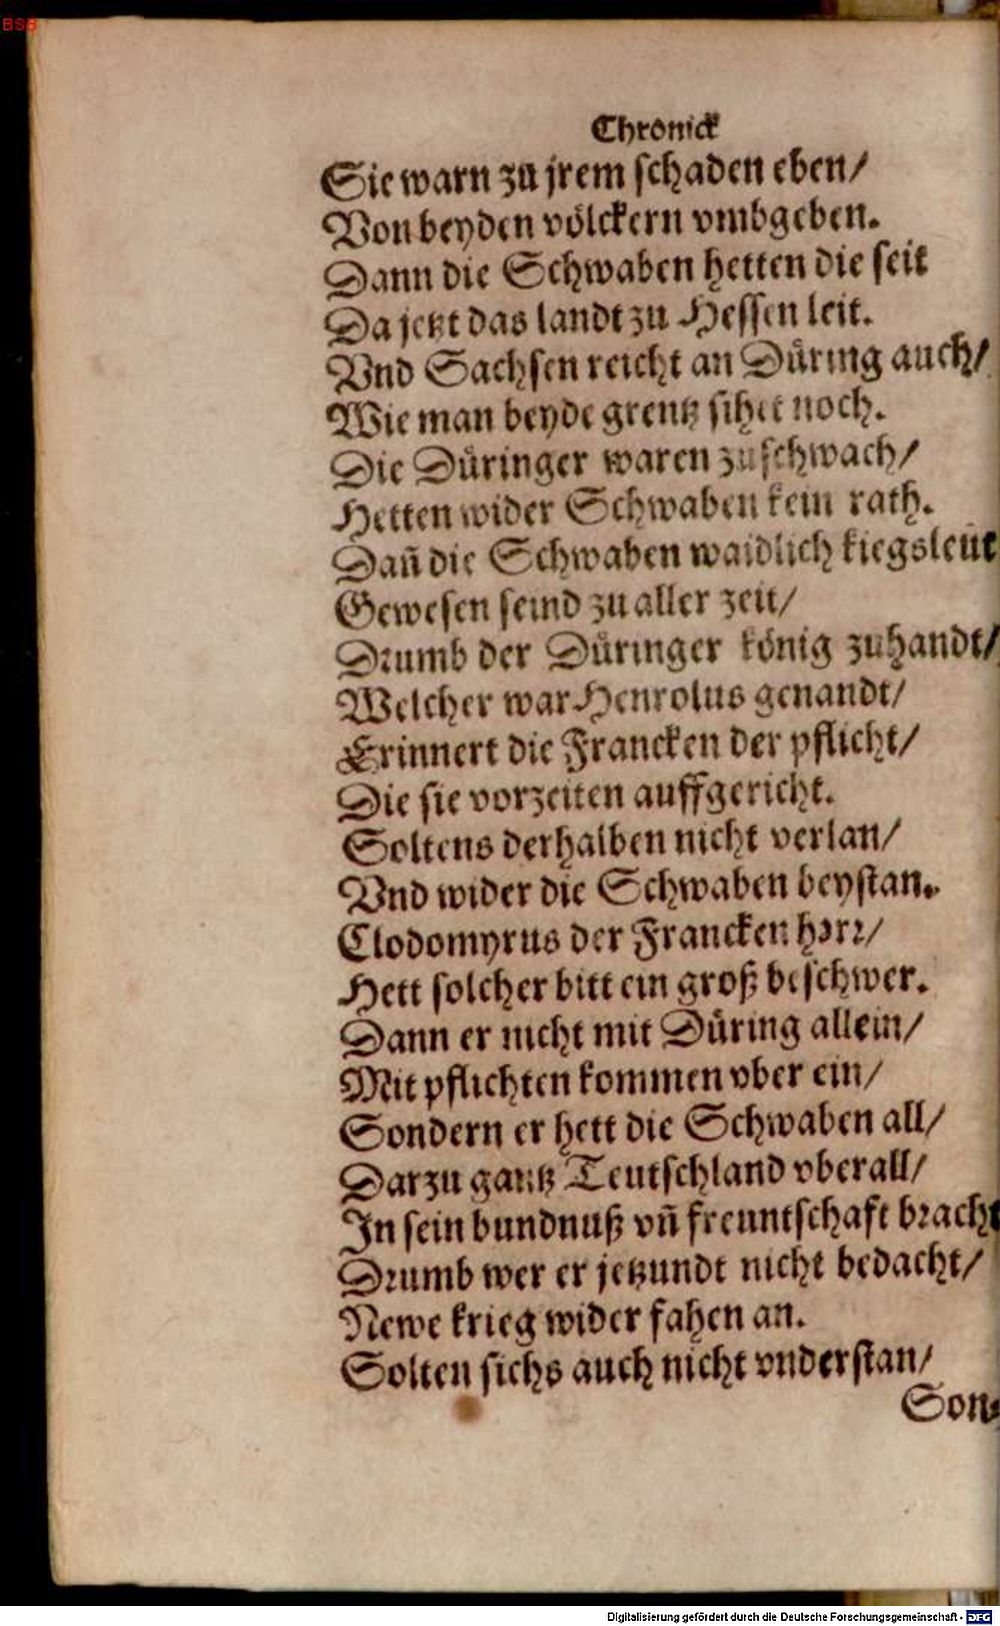 BSB
Chronick
Sie warn zu jrem schaden eben/
Von beyden völckern vmbgeben.
Dann die Schwaben hetten die seit
Da jetzt das landt zu Hessen leit.
Vnd Sachsen reicht an Düring auch/
Wie man beyde grentz sihet noch.
Die Düringer waren zuschwach/
Hetten wider Schwaben kein rath.
Dañ die Schwaben waidlich kiegsleüt
Gewesen seind zu aller zeit/
Drumb der Düringer könig zuhandt/
Welcher war Henrolus genandt/
Erinnert die Francken der pflicht/
Die sie vorzeiten auffgericht.
Soltens derhalben nicht verlan/
Vnd wider die Schwaben beystan.
Clodomyrus der Francken herr/
Hett solcher bitt ein groß beschwer.
Dann er nicht mit Düring allein/
Mit pflichten kommen vber ein/
Sondern er hett die Schwaben all/
Darzu gantz Teutschland vberall/
In sein bundnuß vñ freuntschaft bracht
Drumb wer er jetzundt nicht bedacht/
Newe krieg wider fahen an.
Solten sichs auch nicht vnderstan/
Son-
Digitalisierung gefördert durch die Deutsche Forschungsgemeinschaft - DFG